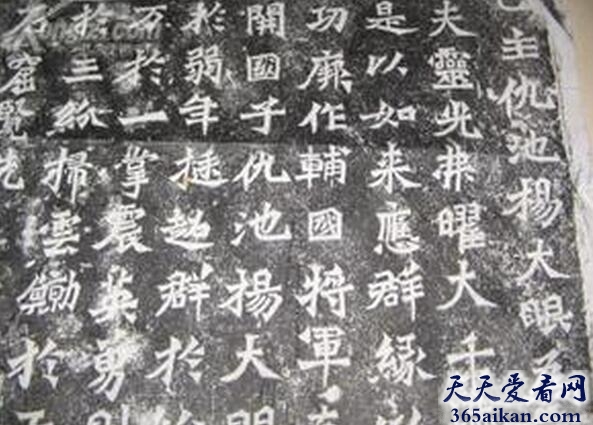 主仇池楊大眼
夫靈光弗曜大千
是以如来應群緣以
功廉作輔國将軍直
開國子仇池楊大眼
於弱年挺超群於
万於一掌震英勇則
於三紛掃雲鯨於天
石窟覽先
天天爱看网
365aikan.com